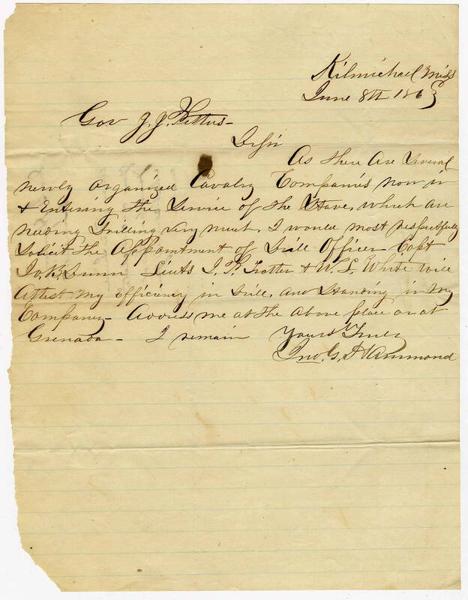 Kilmichael Miss
June 8th 1863
Gov J. J. Pettus-
Sir
As there are Several
newly organized Cavalry Companies now in
& Entering the Service of the State, which are
needing Drilling very much. I would most respectfully
Solicit the Appointment of Drill Officer Capt
Dunn Lieuts J. P. Trotter & W. L. White will
Attest my efficiency in Drill, and Standing in my
Company- Address me at the above place or at
Grenada- I remain Yours Truly
Jno. G. Hammond